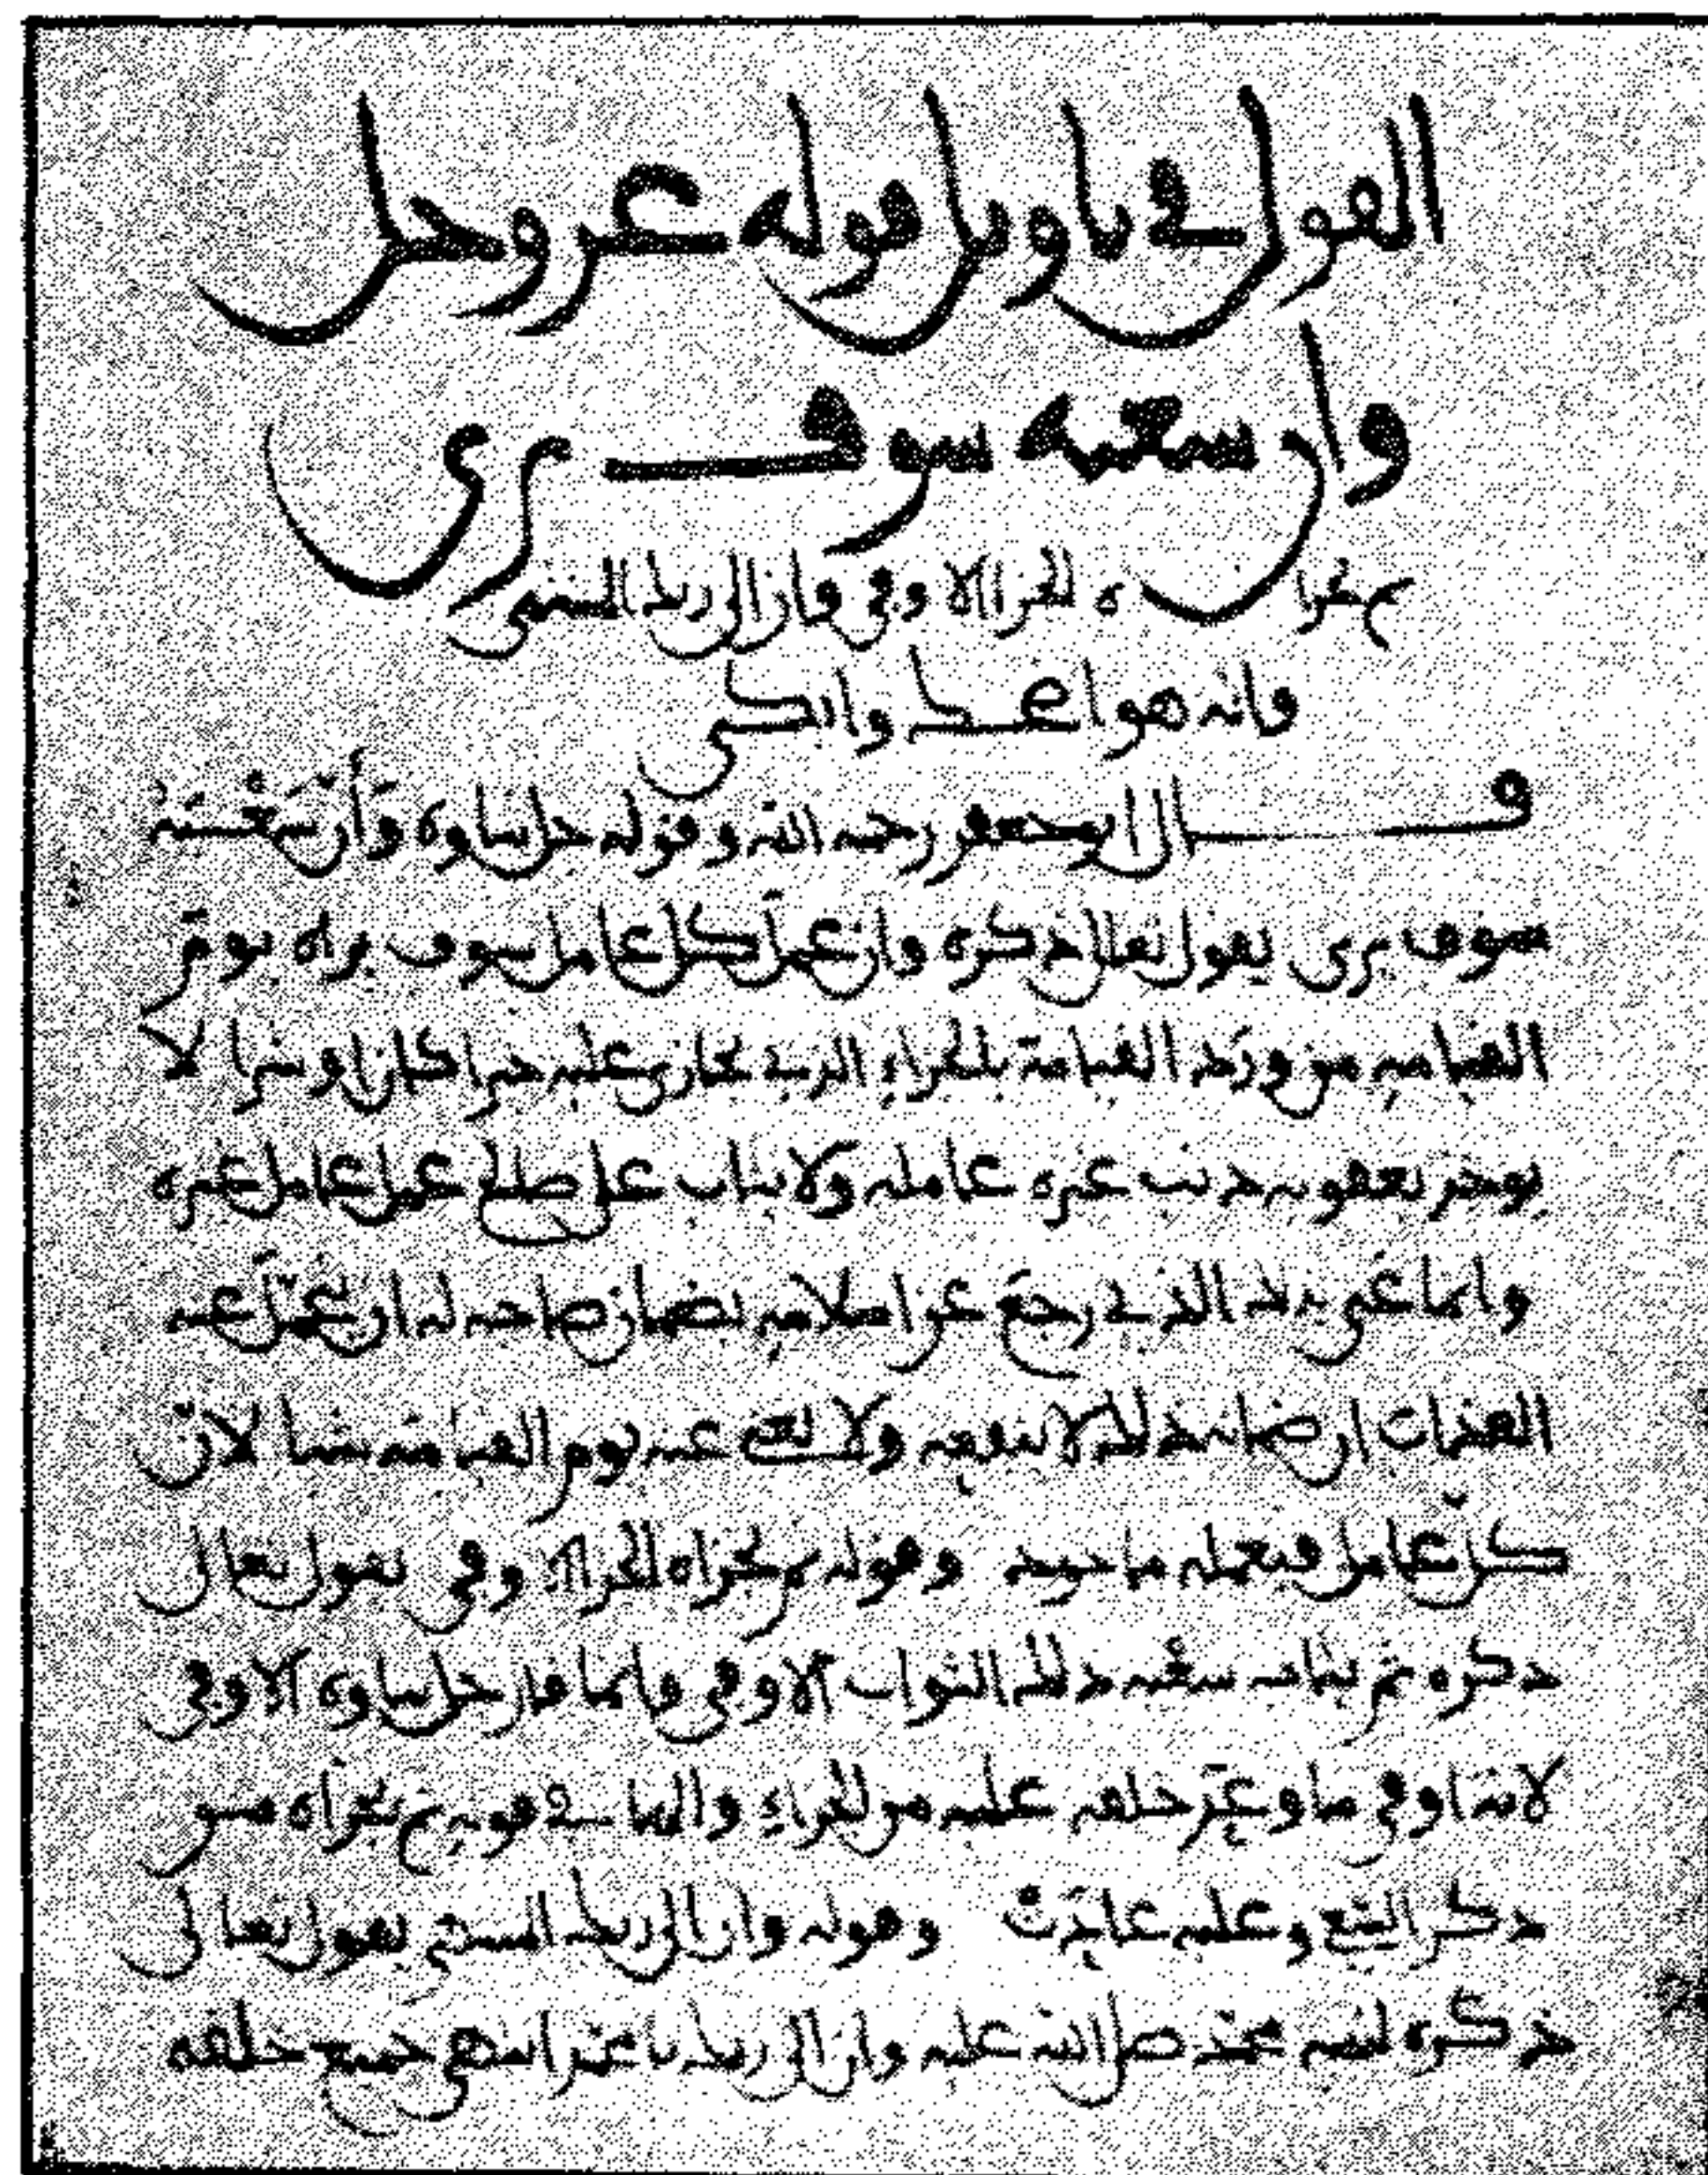 القول في تأويل قوله عز وجل
وأن سعيه سوف يرى
ثم يجزاه الجزاء الاوفى وأن إلى ربك المنتهى
وانه هو اضحك وابكى
قال ابو جعفر رحمه الله وقوله جل ثناوه وَأَنَّ سَعْيَهُ
سوف يرى يقول تعالى ذكره وان عمل كل عامل سوف يراه يوم
القيامه من ورد القيامة بالجزاء الذي يجازى عليه خيرا كان او شرا لا
يوخذ بعقوبه ذنب غيره عامله ولا يثاب على صالح عمله عامل غيره
وانما عني بذلك الذي رجع عن اسلامه بضمان صاحبه له ان يتحمل عنه
العذاب ان ضمانه ذلك لا ينفعه ولا يغني عنه يوم القيامة شيا لان
كل عامل فبعمله ماخوذ وقوله ثم يجزاه الجزاء الاوفى يقول تعالى
ذكره ثم يثاب بسعيه ذلك الثواب الاوفى وانما قال جل ثناوه الاوفى
لانه اوفى ما وعد خلقه عليه من الجزاء والها في قوله ثم يجزاه من
ذكر السعي وعليه عادت وقوله وان الى ربك المنتهى يقول تعالى
ذكره لنبيه محمد صلى الله عليه وان الى ربك يا محمد انتهى جميع خلقه